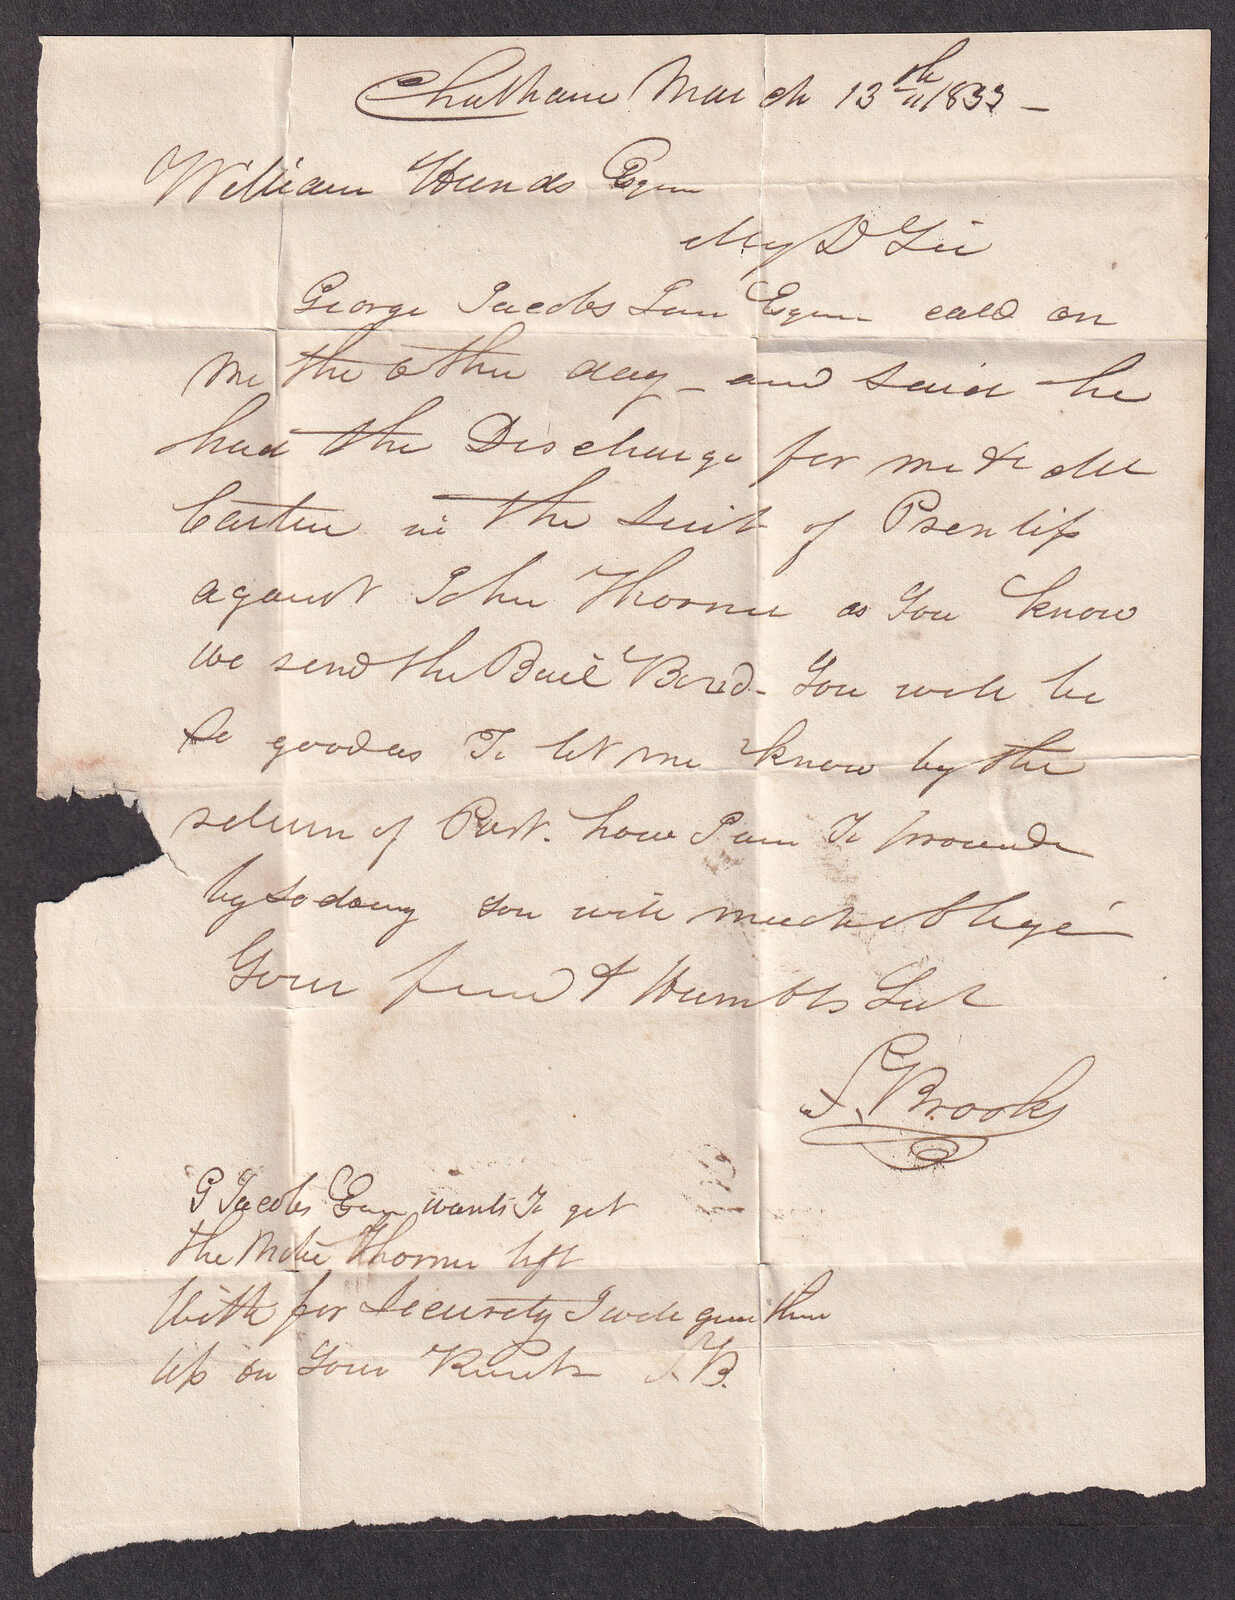 Chatham March 13th 1833 –
William Hands Esqur
My D Sir
George Jacobs Esqur calld on
me the other day – and said he
had the Discharge for me & Mr
in the suit of Prentiss
against John as You know
we send the Bail Bond – You will be
So good as To let me know by the
return of Post. how I am To
by So doing You will much oblige
Your & Humble
S. Brooks
G Jacobs wants To get
the left
With for Security I will give them
up on Your S. B.